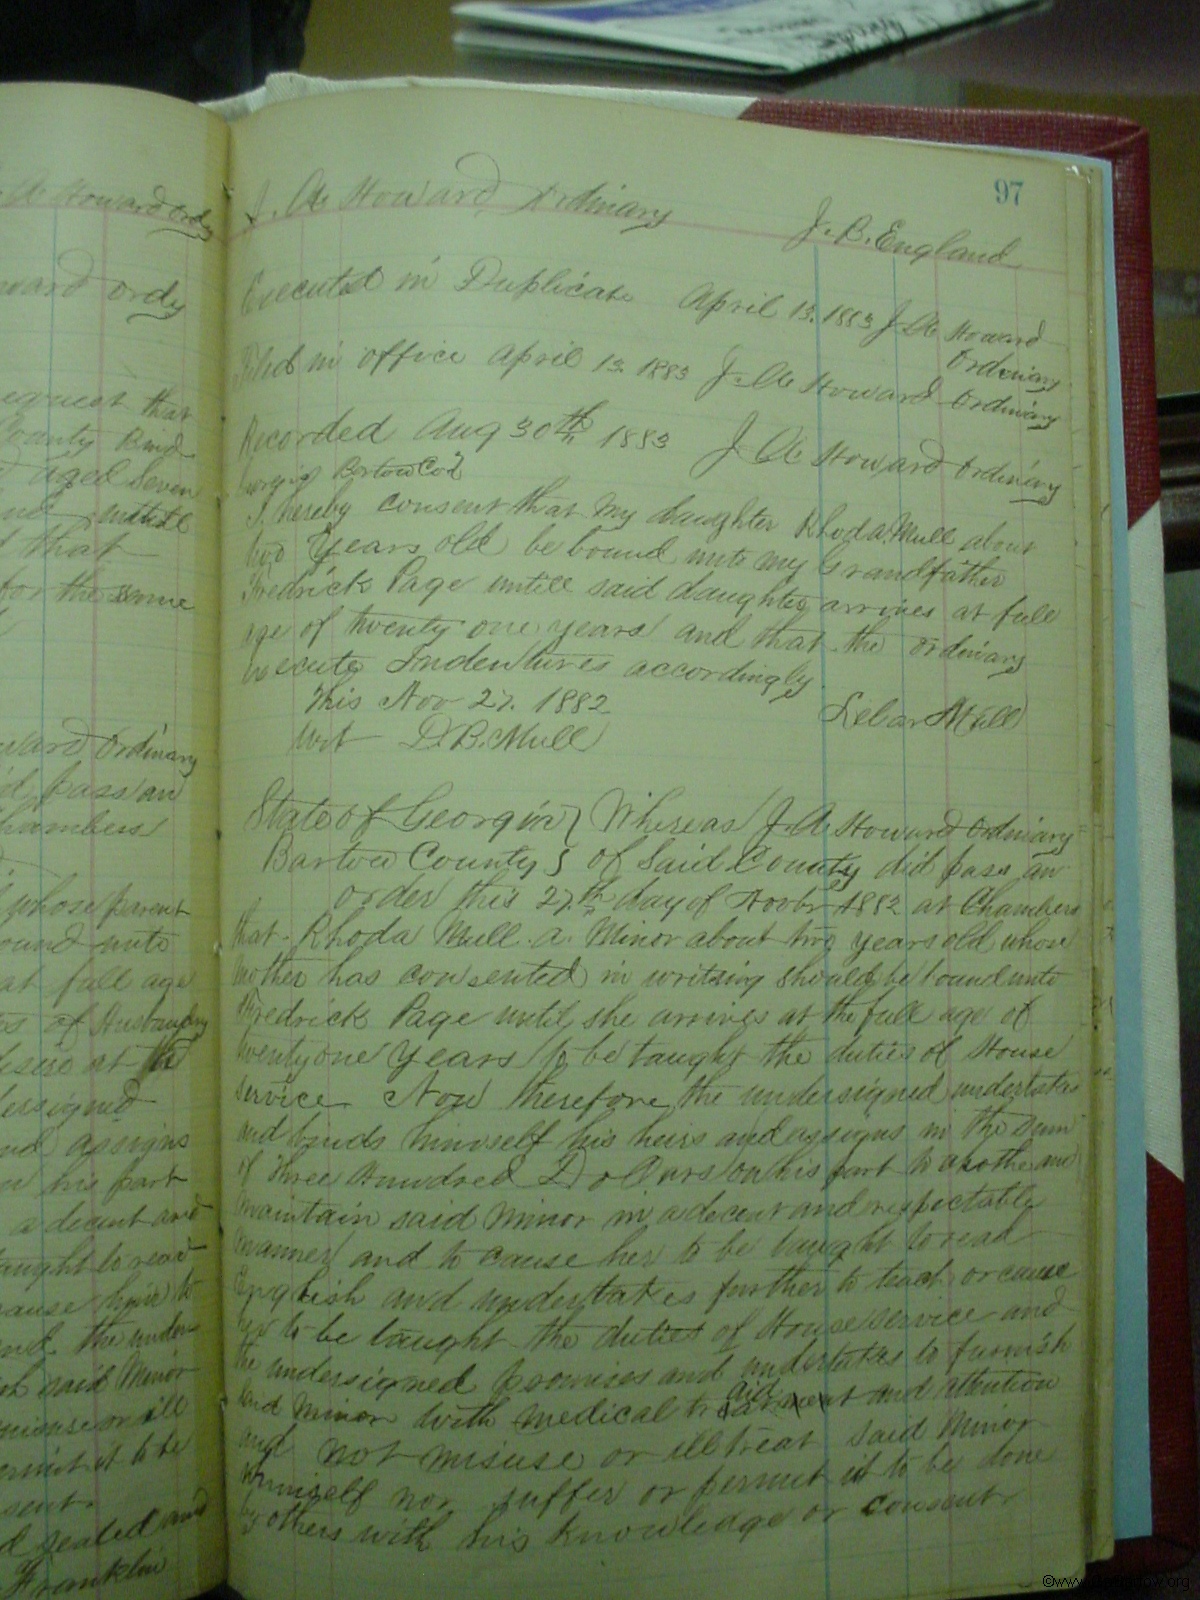 97
J. A. Howard Ordinary
J. B. England
Executed in Duplicate April 13. 1883 J A Howard
Ordinary
Filed in office April 13. 1883 J. A. Howard Ordinary
Recorded Aug 30th 1883 J A Howard Ordinary
Georgia Bartow Co
I hereby consent that my daughter Rhoda Mull about
two years old be bound unto my Grandfather
Fredrick Page untill said daughter arrives at full
age of twenty one years and that the ordinary
execute Indentures accordingly
This Nov 27. 1882
Mull
wit D. B. Mull
State of Georgia } Whereas J. A. Howard Ordinary
Bartow County } of Said County did pass an
order this 27th day of Novbr 1882 at Chambers
that Rhoda Mull a Minor about two years old whose
mother has consented in writing should be bound unto
Fredrick Page until she arrives at the full age of
twenty one years to be taught the duties of House
service Now therefore the undersigned undertakes
and binds himself his heirs and assigns in the sum
of Three Hundred Dollars on his part to clothe and
maintain said minor in a decent and respectable
manner and to cause her to be taught to read
English and undertakes further to teach or cause
her to be taught the duties of House service and
the undersigned promises and undertakes to furnish
said minor with medical aid and attention
and not misuse or illtreat said minor
himself nor suffer or permit it to be done
by others with his knowledge or consent
Howard Ordy
Howard Ordy
request that
County Bind
aged Seven
untill
that
for the same
Howard Ordinary
did pass an
Chambers
whose parent
bound unto
at full age
of Husbandry
at the
undersigned
and assigns
on his part
a decent and
taught to read
cause him to
and the under
said Minor
misuse or ill
permit it to be
sent
sealed and
Franklin